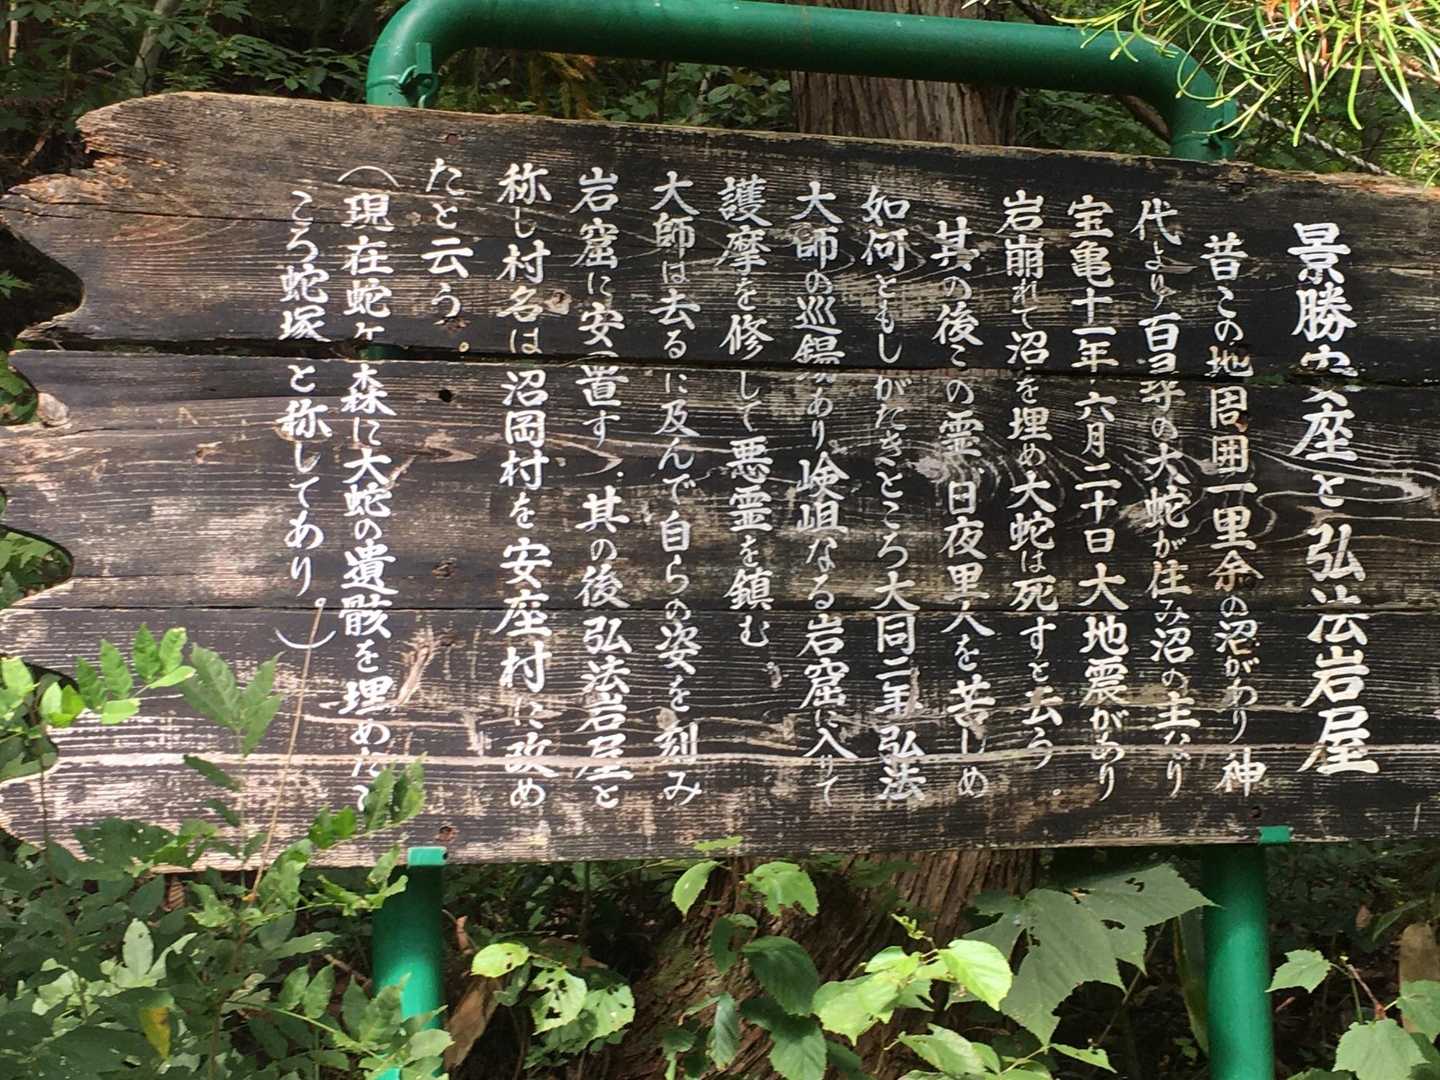 景勝安座と弘法岩屋
昔この地周囲一里余の沼があり神
代より百尋の大蛇が住み沼の主なり
宝亀十一年六月二十日大地震があり
岩崩れて沼を埋め大蛇は死すと云う。
其の後この霊日夜里人を苦しめ
如何ともしがたきところ大同二年弘法
大師の巡錫あり嶮岨なる岩窟に入りて
護摩を修して悪霊を鎮む。
大師は去るに及んで自らの姿を刻み
岩窟に安置す.其の後弘法岩屋と
称し村名は沼岡村を安座村に改め
たと云う。
(現在蛇ヶ森に大蛇の遺骸を埋めたて
ころ蛇塚と称してあり。)